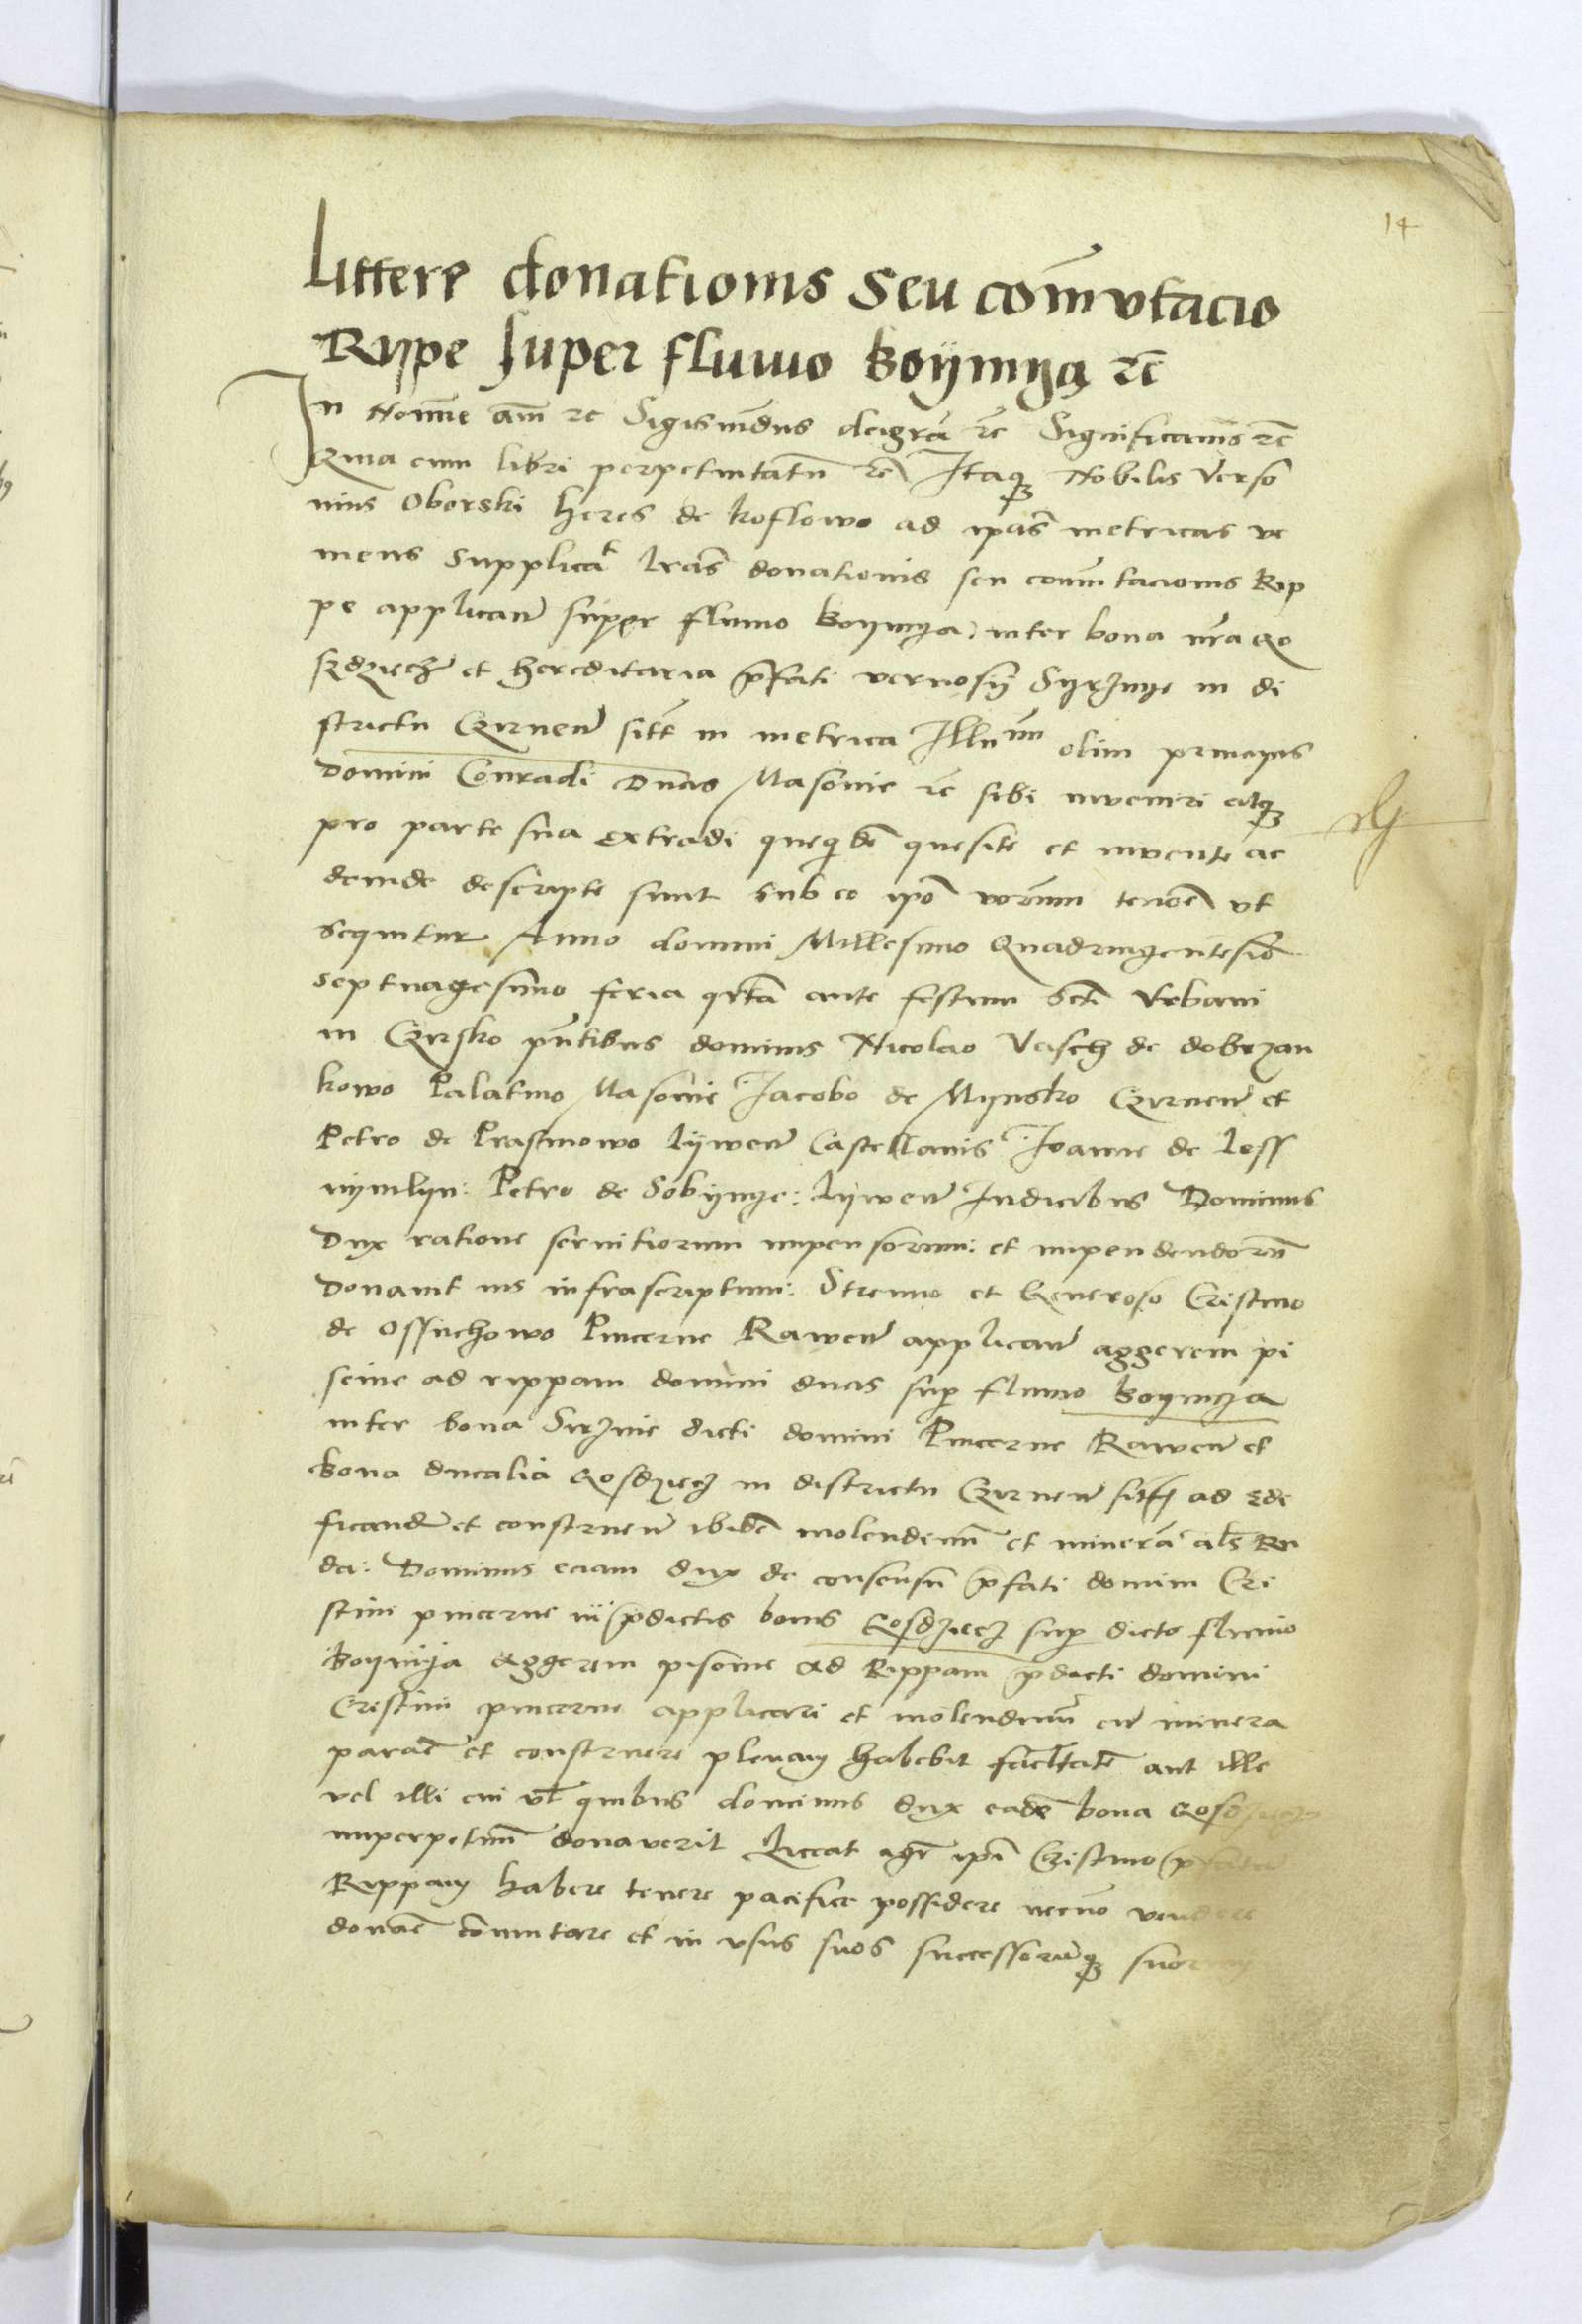 14
Littere donationis seu com̄utacio
Rype super fluuio Koÿmÿa rc̄
In Nomīe am̄ rc Sigismūdus dei gr̄a rc̄ Significamus rc̄
Quia cum libri perpetuitatū rc̄ Itaq Nobilis Verso
nius Oborski heres de koslowo ad ip̄as metricas ve
niens supplicat lr̄as donationis seu com̄utacionis Rip
pe applicanđ super fluuio Koymya inter bona nr̄a Go
et hereditaria p̄fati in di
strictu Czirnen̄ sitt̄ in metrica Illu̅mi olim principis
domini Conradi Ducis Masouie rc̄ sibi inveniri atq
pro parte sua extradi quequidē quesite et invente ac
deinde descripte sunt sub eo ip̄o verborum tenore vt
sequitur Anno domini Millesimo Quadringentesimo
septuagesimo feria qrta ante festum Scti Vrbani
in Czirsko p̄ntibus dominis Nicolao de dobrzan
kowo Palatino Masouie Jacobo de Mynsko Czirnen̄ et
Petro de Prasmowo lÿwen̄ Castellanis Joanne de less
nymlyn: Petro de Sobÿnye: lÿwen̄ Iudicibus Dominus
Dux ratione seruitiorum impensorum: et impendendorū
donauit ius infrascriptum: Strenuo et Generoso Cristino
de Ossuchowo Pincerne Rawen̄ applicanđ aggerem pi
scine ad rippam domini ducis sup fluuio Koymya
inter bona dicti domini Pincerne Rawen̄ et
bona ducalia Gosdziecz in districtu Czirnen̄ ad ede
ficanđ et construenđ ibidē molendinū et minerā als̄ Ru
da: Dominus eciam dux de consensu p̄fati domini Cri
stini pincerne in p̄dictis bonis Gosdziecz sup dicto fluuio
Koymya aggerem piscine ad Rippam p̄dicti domini
Cristini pincerne applicari et molendinū cū minera
parare et construere plenam habebit facltatē aut ille
vel illi cui vl̄ quibus dominus dux eadē bona Gosdziecz
imperpetuū donaverit Liceat ip̄i Cristino
Rippam habere tenere pacifice possidere necnō vendere
donare com̄utare et in vsus suos successorūq suorum